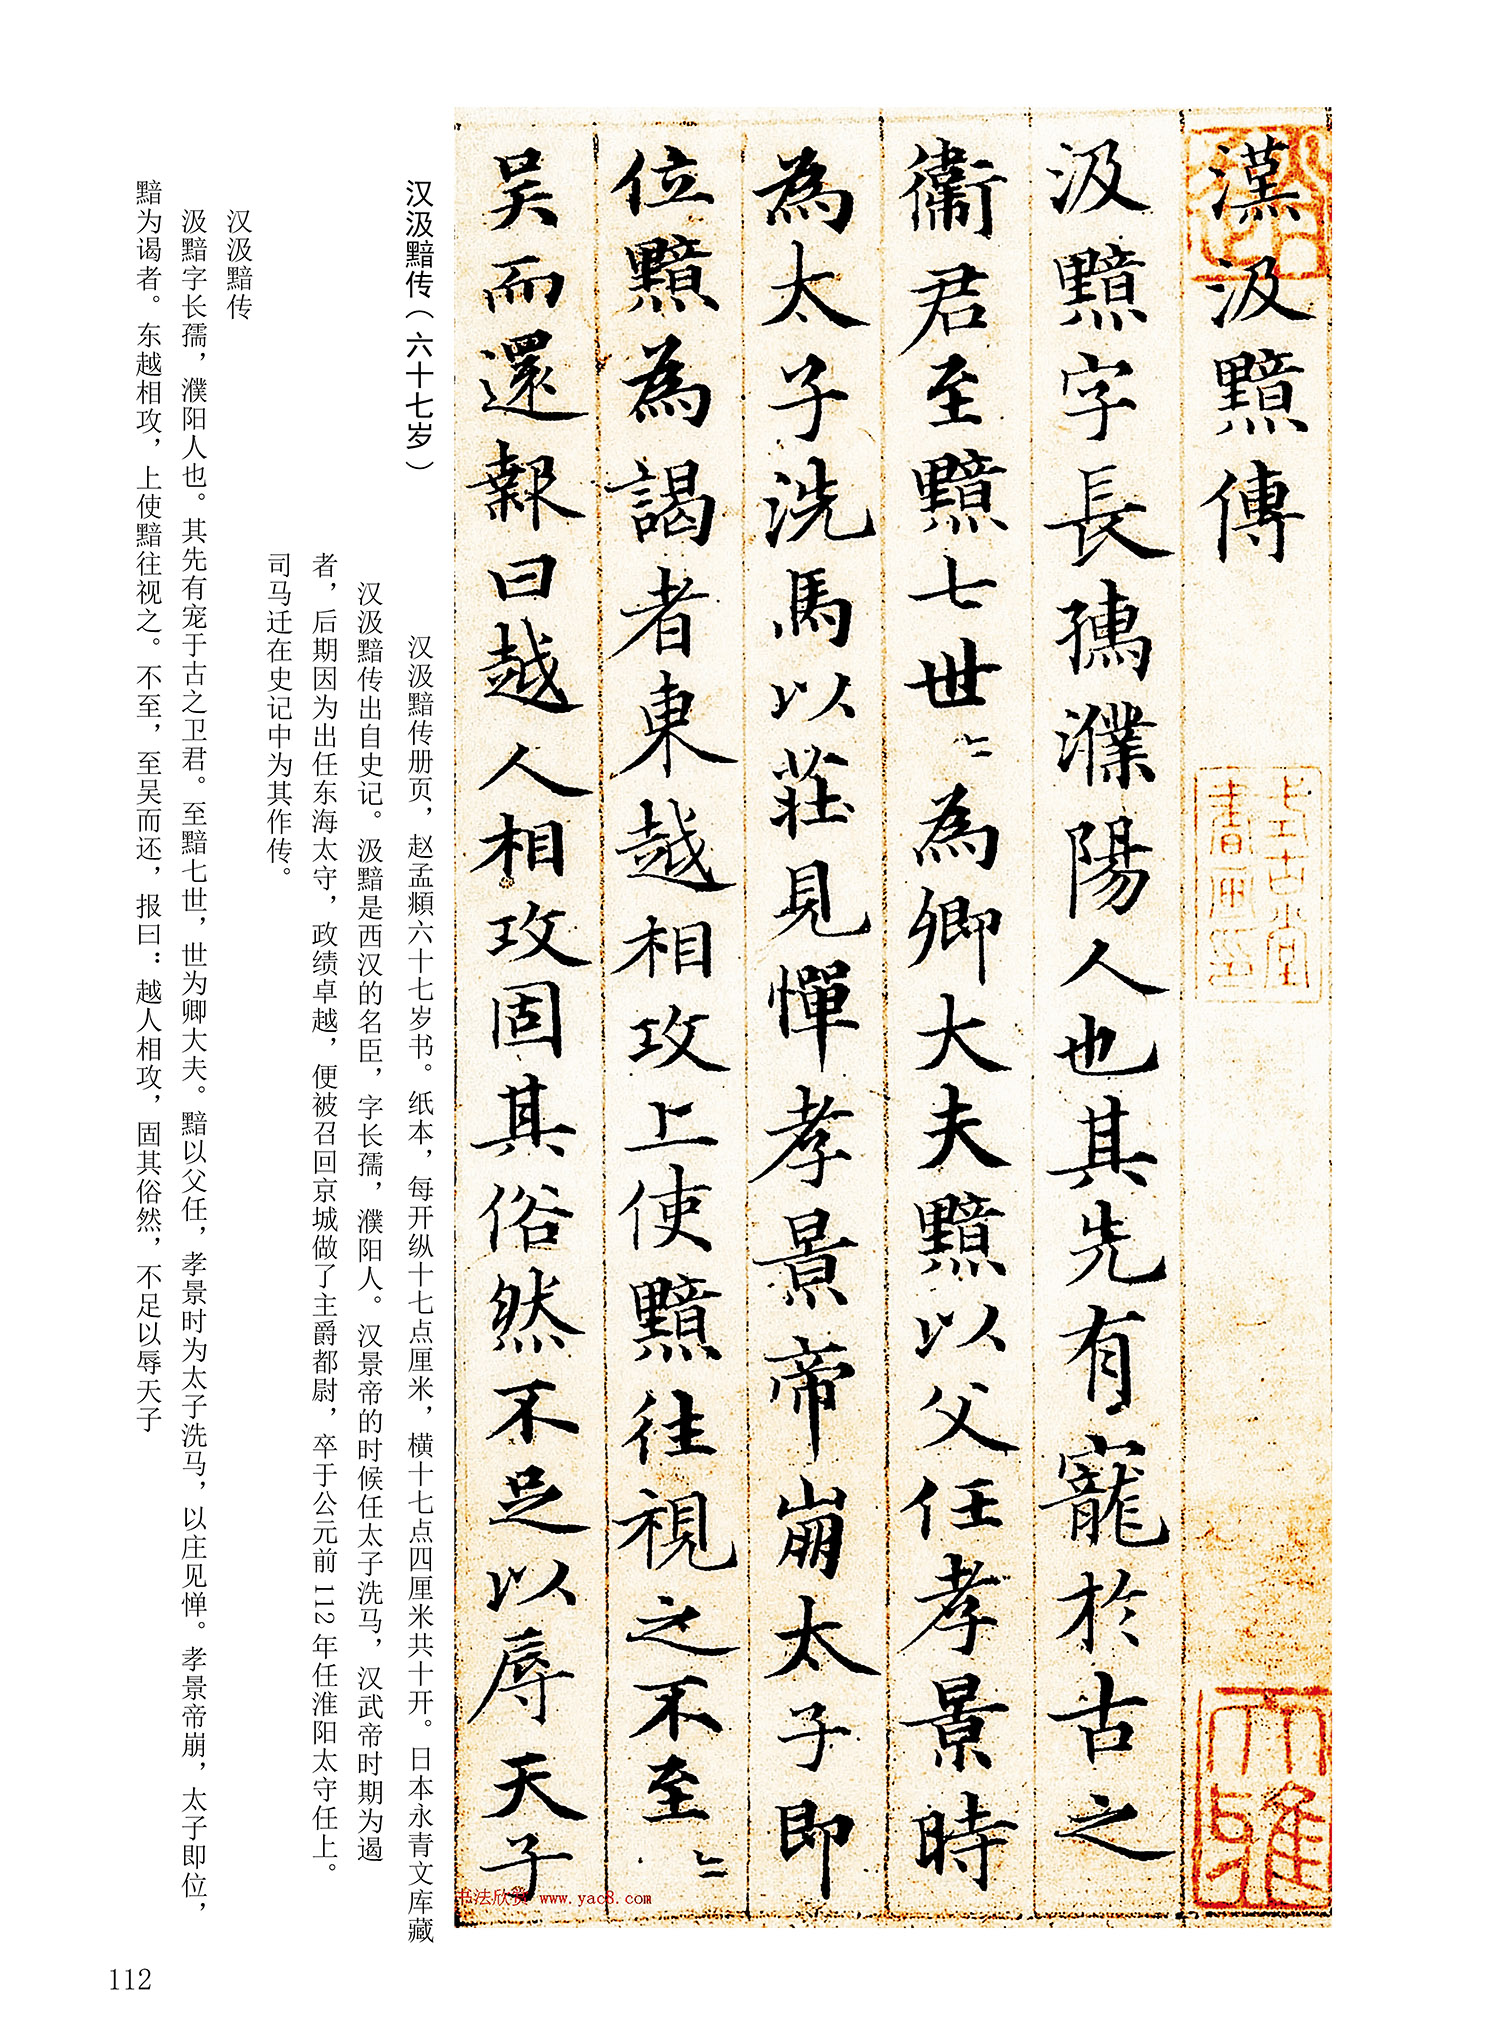 漢汲黯傳
式古堂
書画印
大雅
汲黯字長孺濮陽人也其先有寵於古之
衛君至黯七世〻為卿大夫黯以父任孝景時
為太子洗馬以莊見憚孝景帝崩太子即
位黯為謁者東越相攻上使黯往視之不至〻
吴而還報曰越人相攻固其俗然不足以辱天子
书法欣赏 www.yac8.com
汉汲黯传（六十七岁）
汉汲黯传册页，赵孟頫六十七岁书。纸本，每开纵十七点厘米，横十七点四厘米共十开。日本永青文库藏
汉汲黯传出自史记。汲黯是西汉的名臣，字长孺，濮阳人。汉景帝的时候任太子洗马，汉武帝时期为谒
者，后期因为出任东海太守，政绩卓越，便被召回京城做了主爵都尉，卒于公元前112年任淮阳太守任上。
司马迁在史记中为其作传。
汉汲黯传
汲黯字长孺，濮阳人也。其先有宠于古之卫君。至黯七世，世为卿大夫。黯以父任，孝景时为太子洗马，以庄见惮。孝景帝崩，太子即位，
黯为谒者。东越相攻，上使黯往视之。不至，至吴而还，报曰：越人相攻，固其俗然，不足以辱天子
112